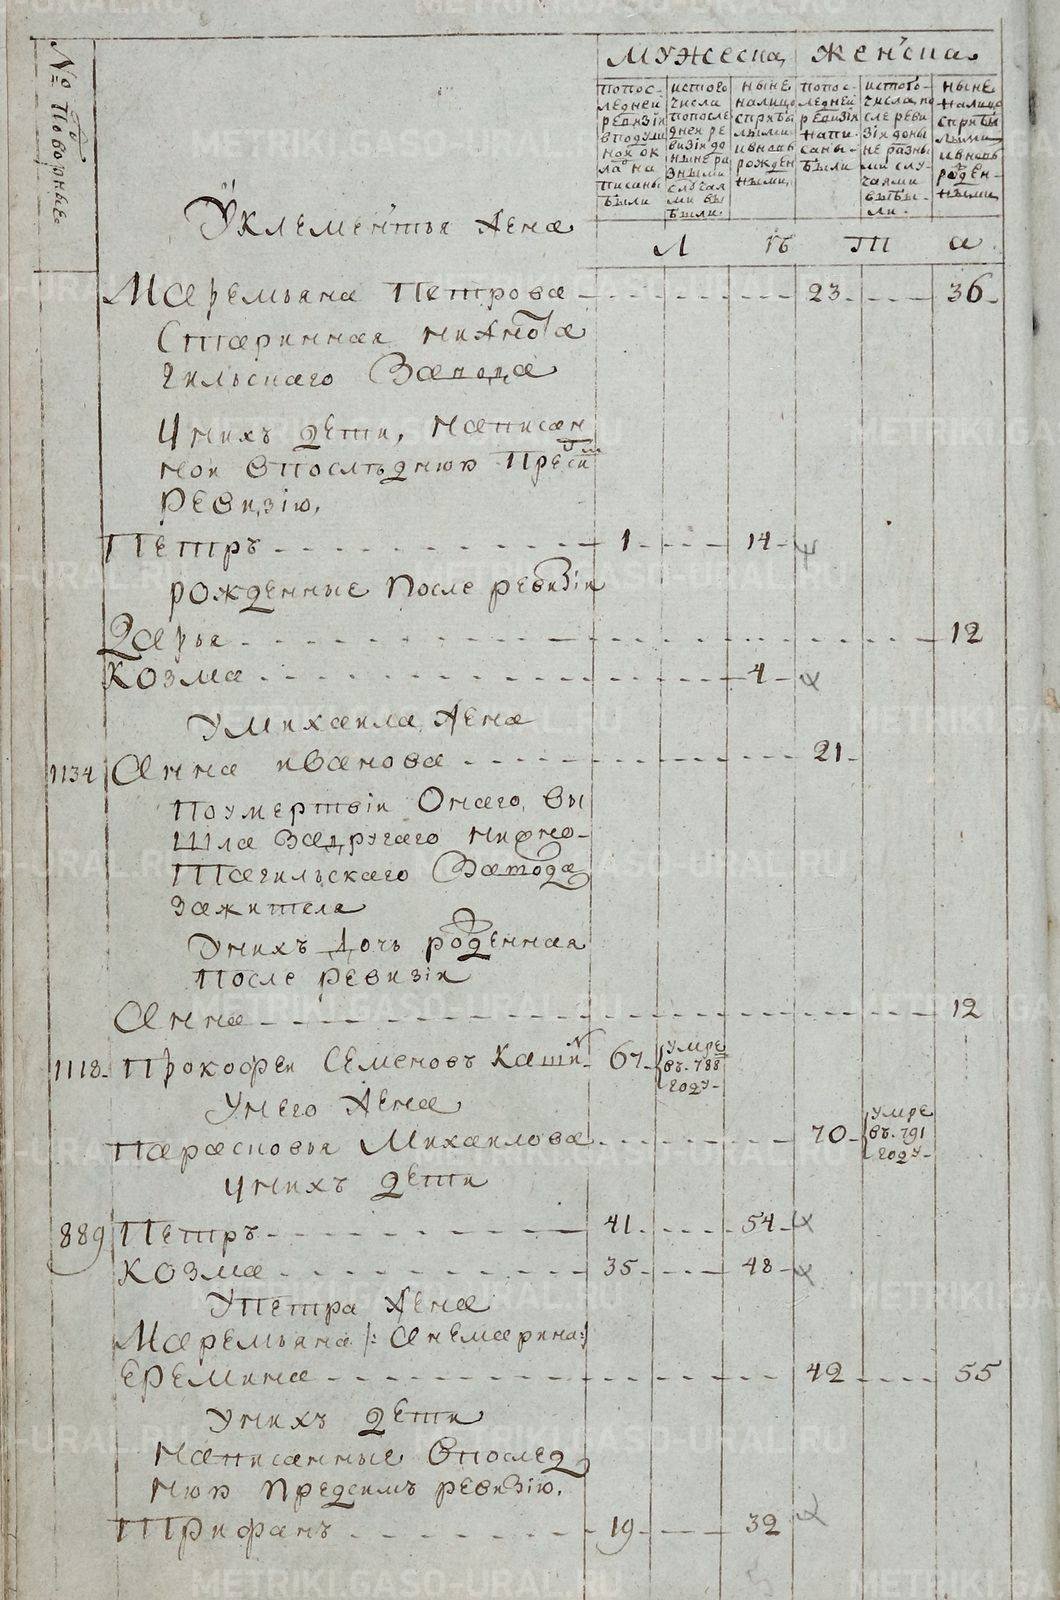 № Подворные
мужеска
женска
попос-
ледней
ревизіи
вподуш
ной ок
ладъ на
писаны
были
истого
числа
попосле
дней ре
визіи до
ныне ра
зными
случая
ми вы
были
ныне
налицо
сприбы
лыми
ивновь
рожден
ными
попос-
ледней
ревизіи
напи
саны-
были
истогъ-
числа по
сле реви
зіи доны
не разны
ми слу-
чаями
выбы-
ли.
ныне
налицо
сприбы
лыми
ивновь
рожден-
ными
Л ѣ т а
Уклементья жена
Маремьяна Петрова 23. 36.
Старинная нижнота
гильскаго Завода
Унихъ дети, написан
ной впоследнюю предсим
Ревизію,
Петръ 1 14
рожденные после ревизіи
Дарья 12
Козма 4
Умихаила жена
1134 Анна иванова 21
поумертвіи Онаго, вы
шла задругаго нижно-
Тагильскаго Завода
зажителя
Унихъ дочь рожденная
после ревизіи
Анна 12
1118. Прокофеи Семеновъ Кашин 67. умре
въ. 788
году
Унего жена
Парасковья Михаилова 70 умре
въ. 791
году
Унихъ дети
889 Петръ 41 54
Козма 35 48
Упетра жена
Маремьяна /: анемарина:/
Еремина 42 55
Унихъ дети
написанные впослед
нюю предсимъ ревизію.
Трифанъ 19 32
METRIKI.GASO-URAL.RU